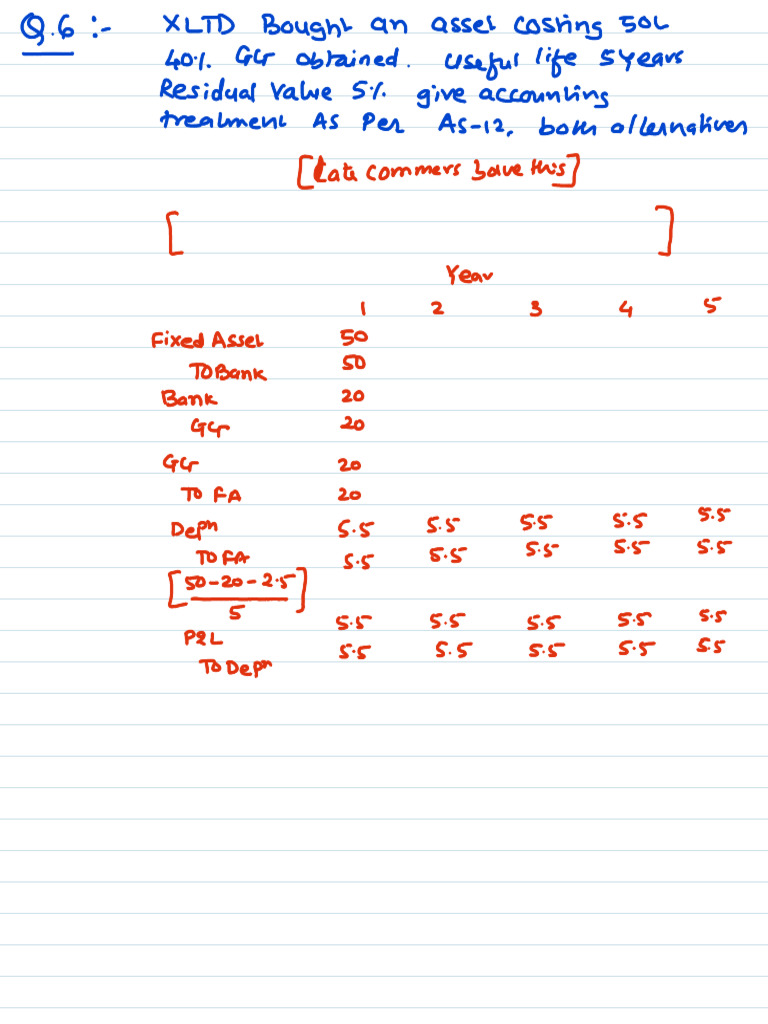 Q.6 :- XLTD Bought an asset costing 50L
40%. GG obtained. useful life 5 Years
Residual Value 5%. give accounting
treatment As Per As-12, both alternatives
[Late commers Save this]
[ ]
Year
1 2 3 4 5
Fixed Asset 50
To Bank 50
Bank 20
GG 20
GG 20
To FA 20
Depn 5.5 5.5 5.5 5.5 5.5
To FA 5.5 5.5 5.5 5.5 5.5
[50-20-2.5
5]
P&L 5.5 5.5 5.5 5.5 5.5
To Depn 5.5 5.5 5.5 5.5 5.5